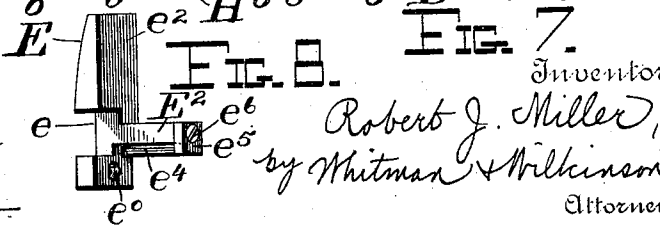 H
E e²
FIG. 8. FIG. 7.
Inventor
E² e⁶
e e⁵
Robert J. Miller,
e⁴
by Whitman & Wilkinson
e⁰
Attorney